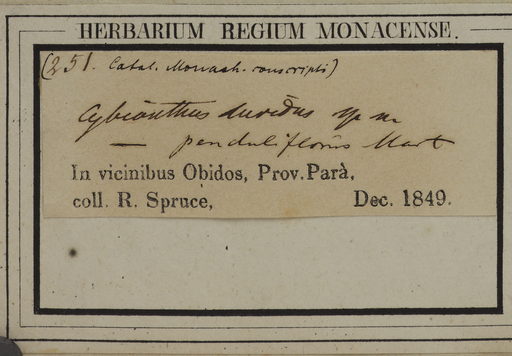 HERBARIUM REGIUM MONACENSE.
(251. Catal. Monach. conscripti)
Cybianthus sp. n.
— penduliflorus Mart
In vicinibus Obidos, Prov. Parà,
coll. R. Spruce, Dec. 1849.